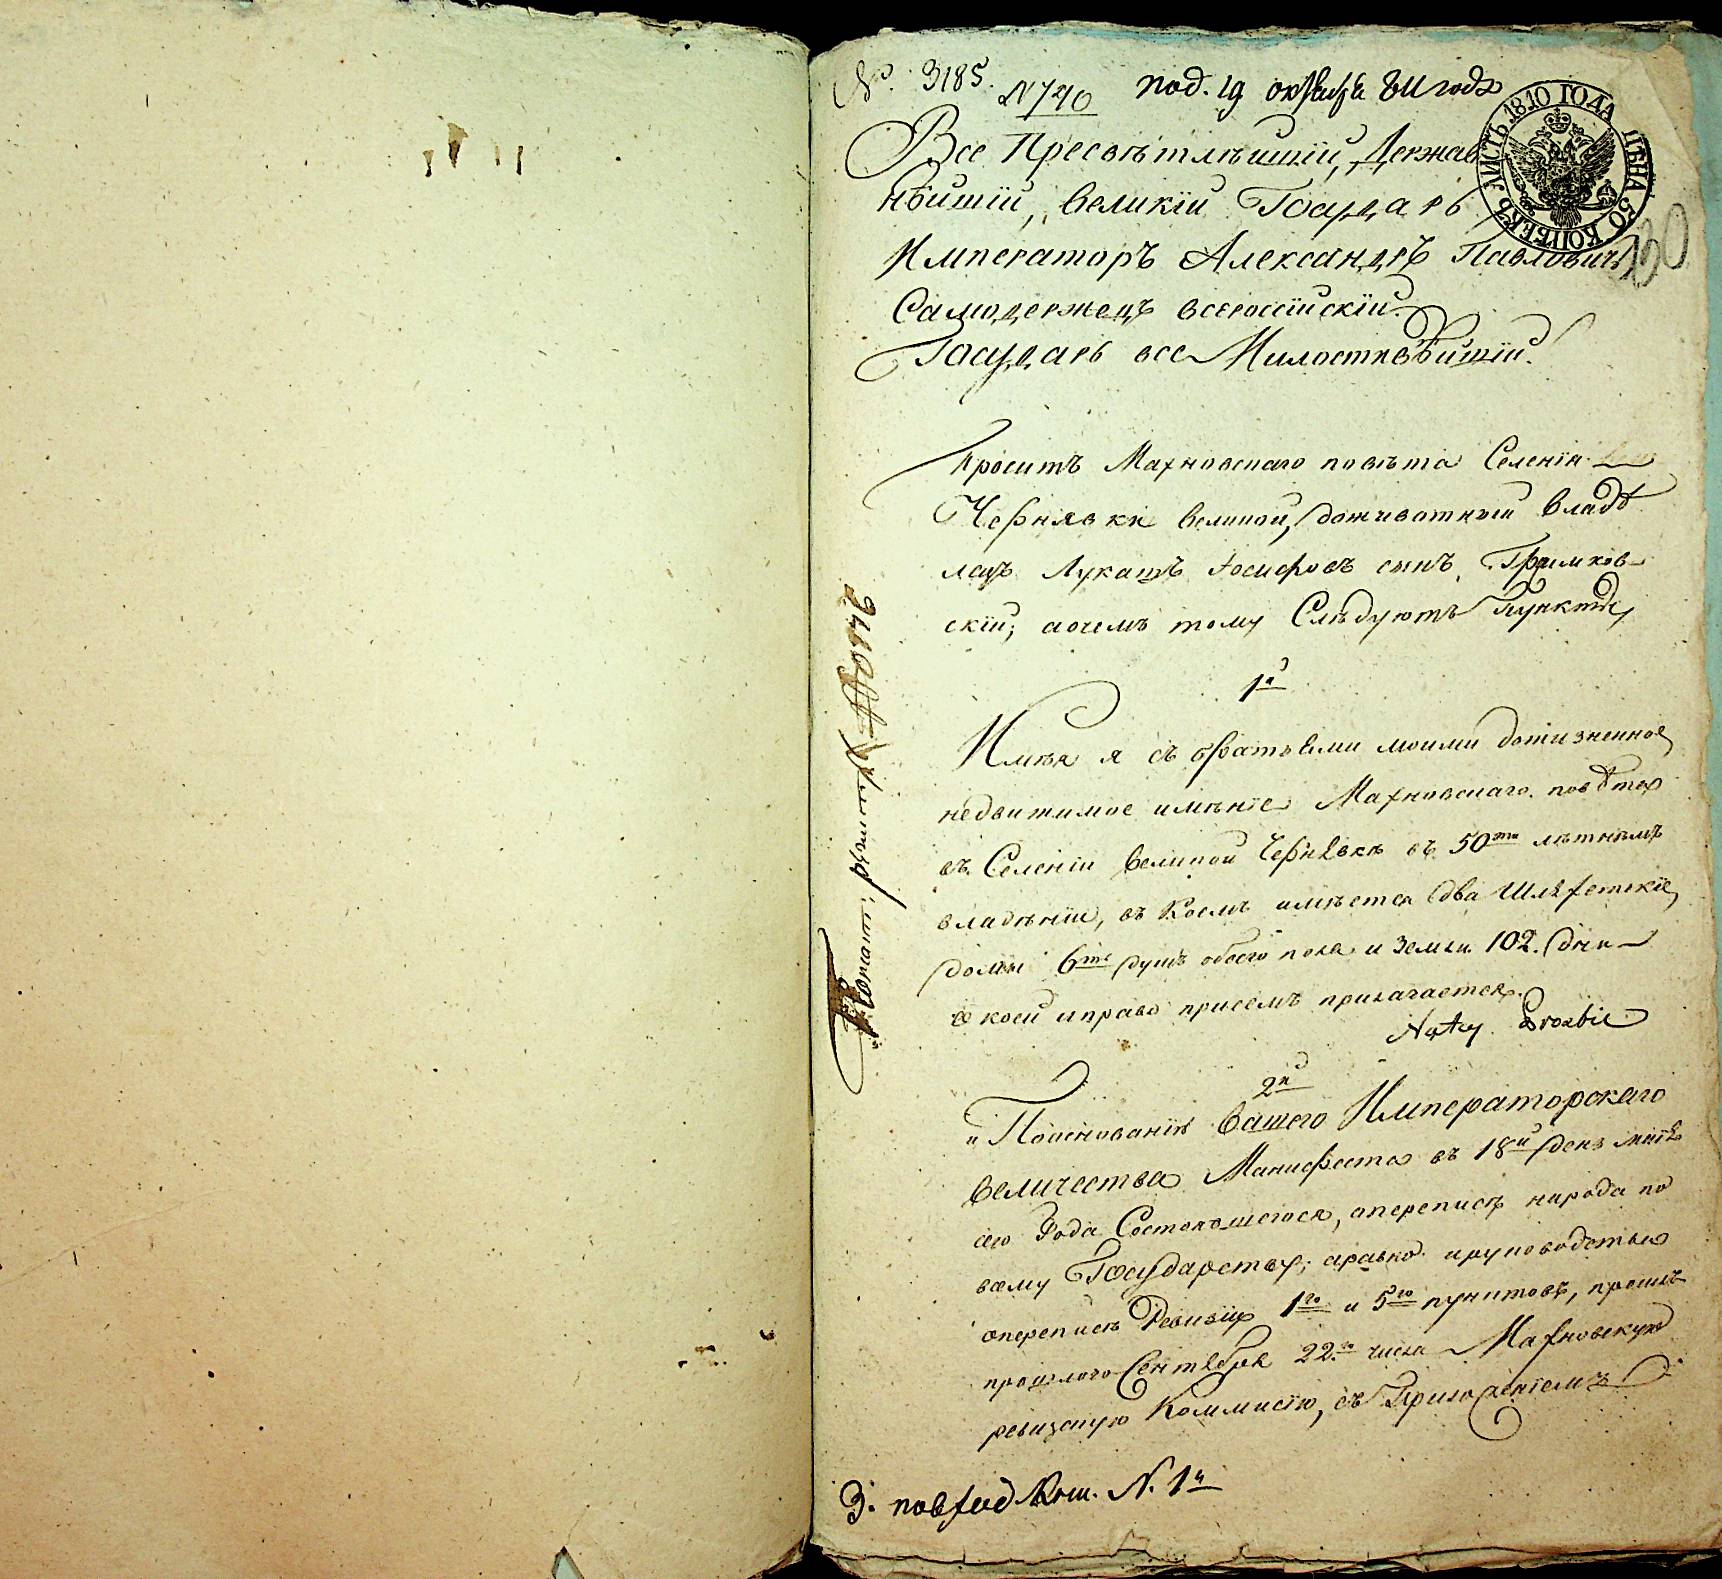 №. 3185. N 740 под. 19 октября 811 года
ЛИСТЪ 1810 ГОДА ЦѢНА 50 КОПѢЕКЪ
Все Пресвѣтлѣишїи, Держав
нѣишїи, великїи Государь
Императоръ Александръ Павловичъ
Самодержецъ всероссїискїи
Государь все Милостивѣишїи!
проситъ Махновскаго повѣта Селенїя
Чернявки великой, доживотныи владѣ
лецъ Лукашъ Іосифовъ сынъ
скїи; а очемъ тому Слѣдуютъ Пункты
1й
Имѣя я съ братьями моими дотизненное
недвижимое имѣнїе Махновскаго повѣта
въ Селенїи великой Чернявкѣ въ 50ти лѣтнѣмъ
владѣнїи, въ коемъ имѣется два Шляхетскїе
домы 6ть душъ обоего пола и земли 102. дни
о коей и право присемъ прилагается.
2й
Пооснованїи вашего Императорскаго
величества Манифеста въ 18й день маїя
сего года Состоявшегося, о переписѣ народа по
всему Государству; аравно и руководства
о переписѣ Ревизїи 1го и 5го пунктовъ, прошлъ
прошлого Сентября 22го числа Махновскую
ревизскую Коммисїю, съ Приложенїемъ
N. 1й